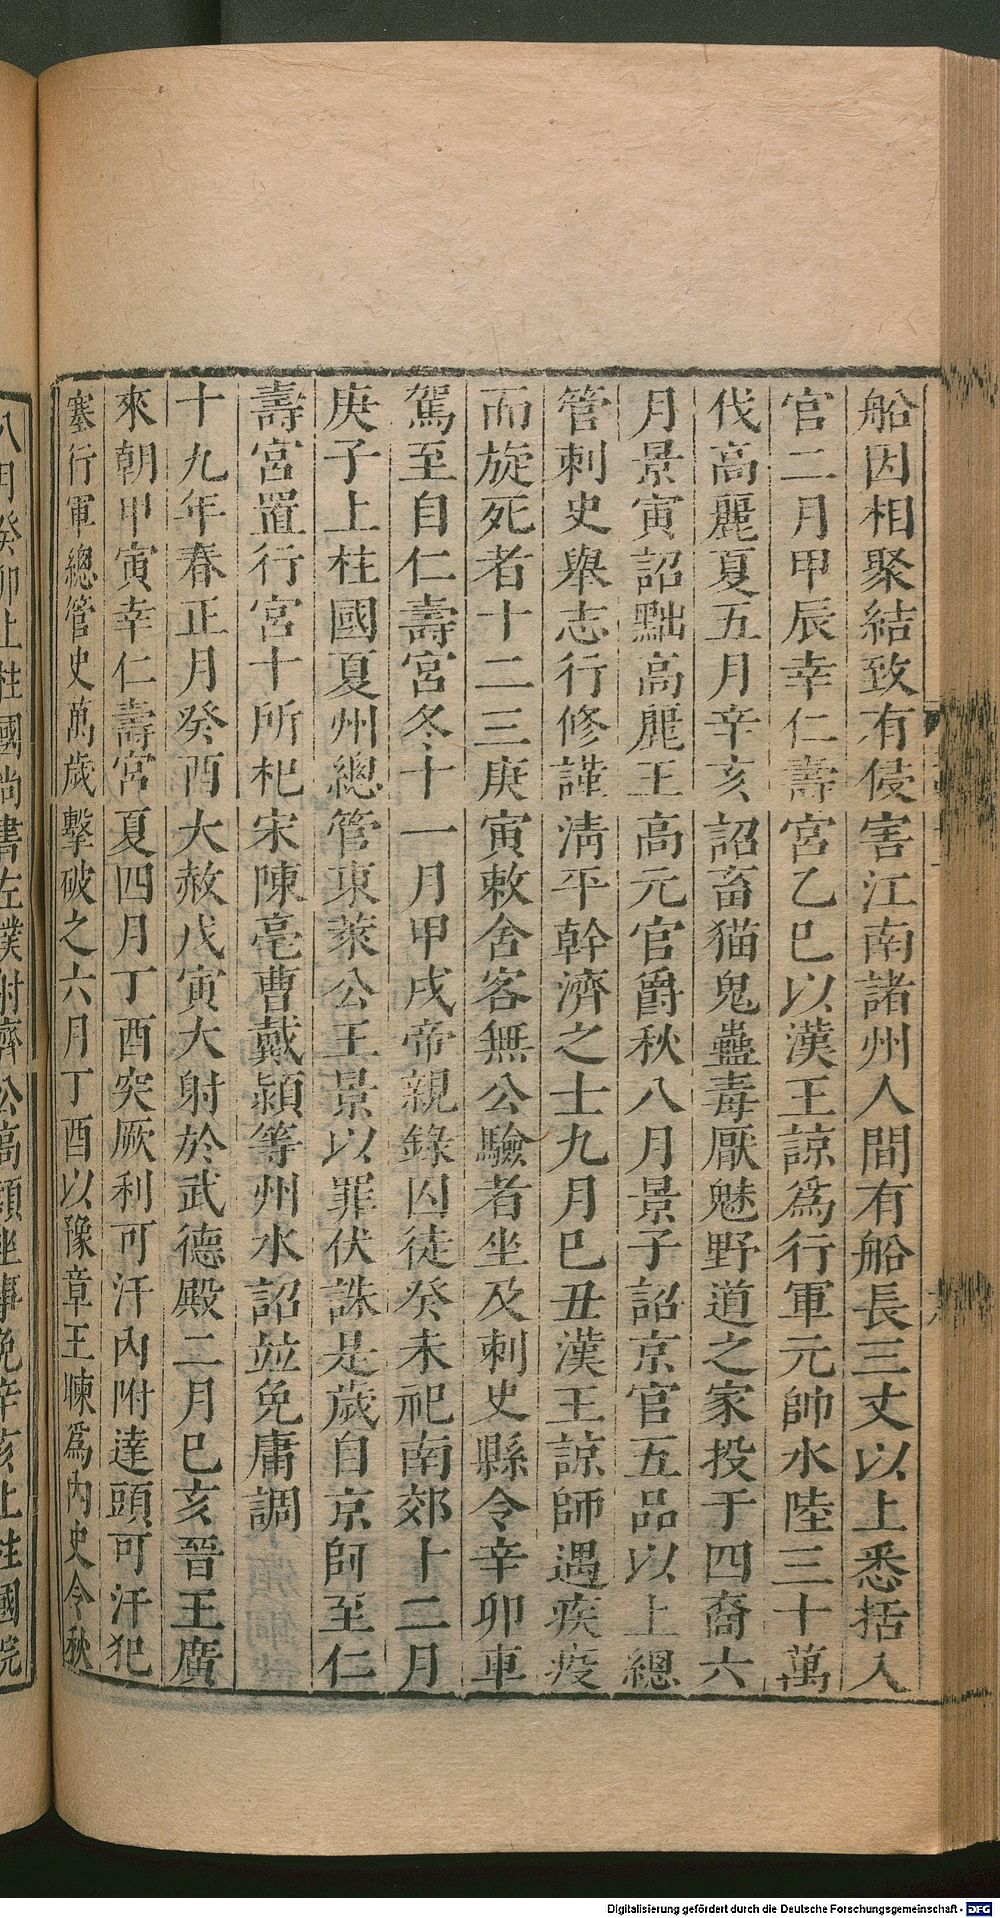 船因相聚結致有侵害江南諸州人間有船長三丈以上悉括入
官二月甲辰幸仁壽宮乙巳以漢王諒爲行軍元帥水陸三十萬
伐高麗夏五月辛亥詔畜猫鬼蠱毒厭魅野道之家投于四裔六
月景寅詔黜高麗王高元官爵秋八月景子詔京官五品以上總
管刺史舉志行修謹淸平幹濟之士九月巳丑漢王諒師遇疾疫
而旋死者十二三庚寅敕舍客無公驗者坐及刺史縣令辛卯車
駕至自仁壽宮冬十一月甲戌帝親錄囚徒癸未祀南郊十二月
庚子上柱國夏州總管東萊公王景以罪伏誅是歲自京師至仁
壽宮置行宮十所杞宋陳亳曹戴潁等州水詔竝免庸調
十九年春正月癸酉大赦戊寅大射於武德殿二月巳亥晉王廣
來朝甲寅幸仁壽宮夏四月丁酉突厥利可汗內附達頭可汗犯
塞行軍總管史萬歲擊破之六月丁酉以豫章王暕爲內史令秋
八月癸卯上柱國尚書左僕射齊公高熲坐事免辛亥上柱國皖
Digitalisierung gefördert durch die Deutsche Forschungsgemeinschaft - DFG